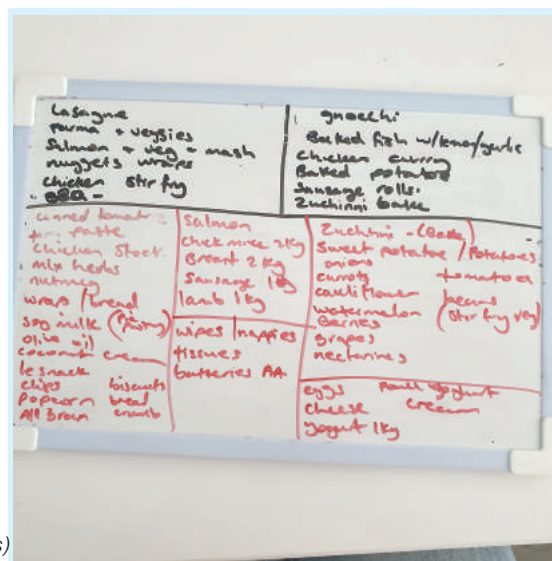 Lasagne
Parma + veggies
Salmon + veg + mash
nuggets wraps
chicken stir fry
BBQ -
gnocchi
Baked fish w/lemon/garlic
Chicken curry
Baked potatoe
Sausage rolls.
Zuchinni bake
tinned tomato
patte
Chicken Stock
mix herbs
nutmeg
wraps / bread
soy milk
olive oil
coconut cream
le snack
chips biscuits
popcorn bread
All bran crumb
Salmon
Chick mince 2kg
Breast 2kg
Sausage 1kg
lamb 1kg
wipes / nappies
tissues
batteries AA
Zuchinni - (Bake)
Sweet potatoe / Potatoes
onions
carrots tomatoes
cauliflower beans
watermelon (stir fry veg)
Berries
grapes
nectarines
eggs pouch yogurt
cheese cream
yogurt 1kg
s)